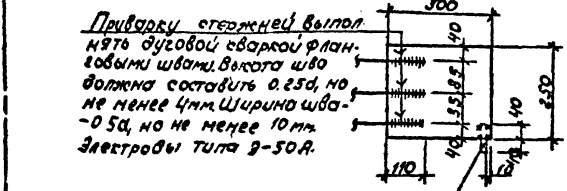 300
Приварку стержней выпол
нять дуговой сваркой флан-
говыми швами. Высота шво
должна составить 0.25d, но
не менее 4мм. Ширина шва-
-0.5d, но не менее 10 мм.
Электроды типа Э-50А.
40
85
35
40
250
40
110
10